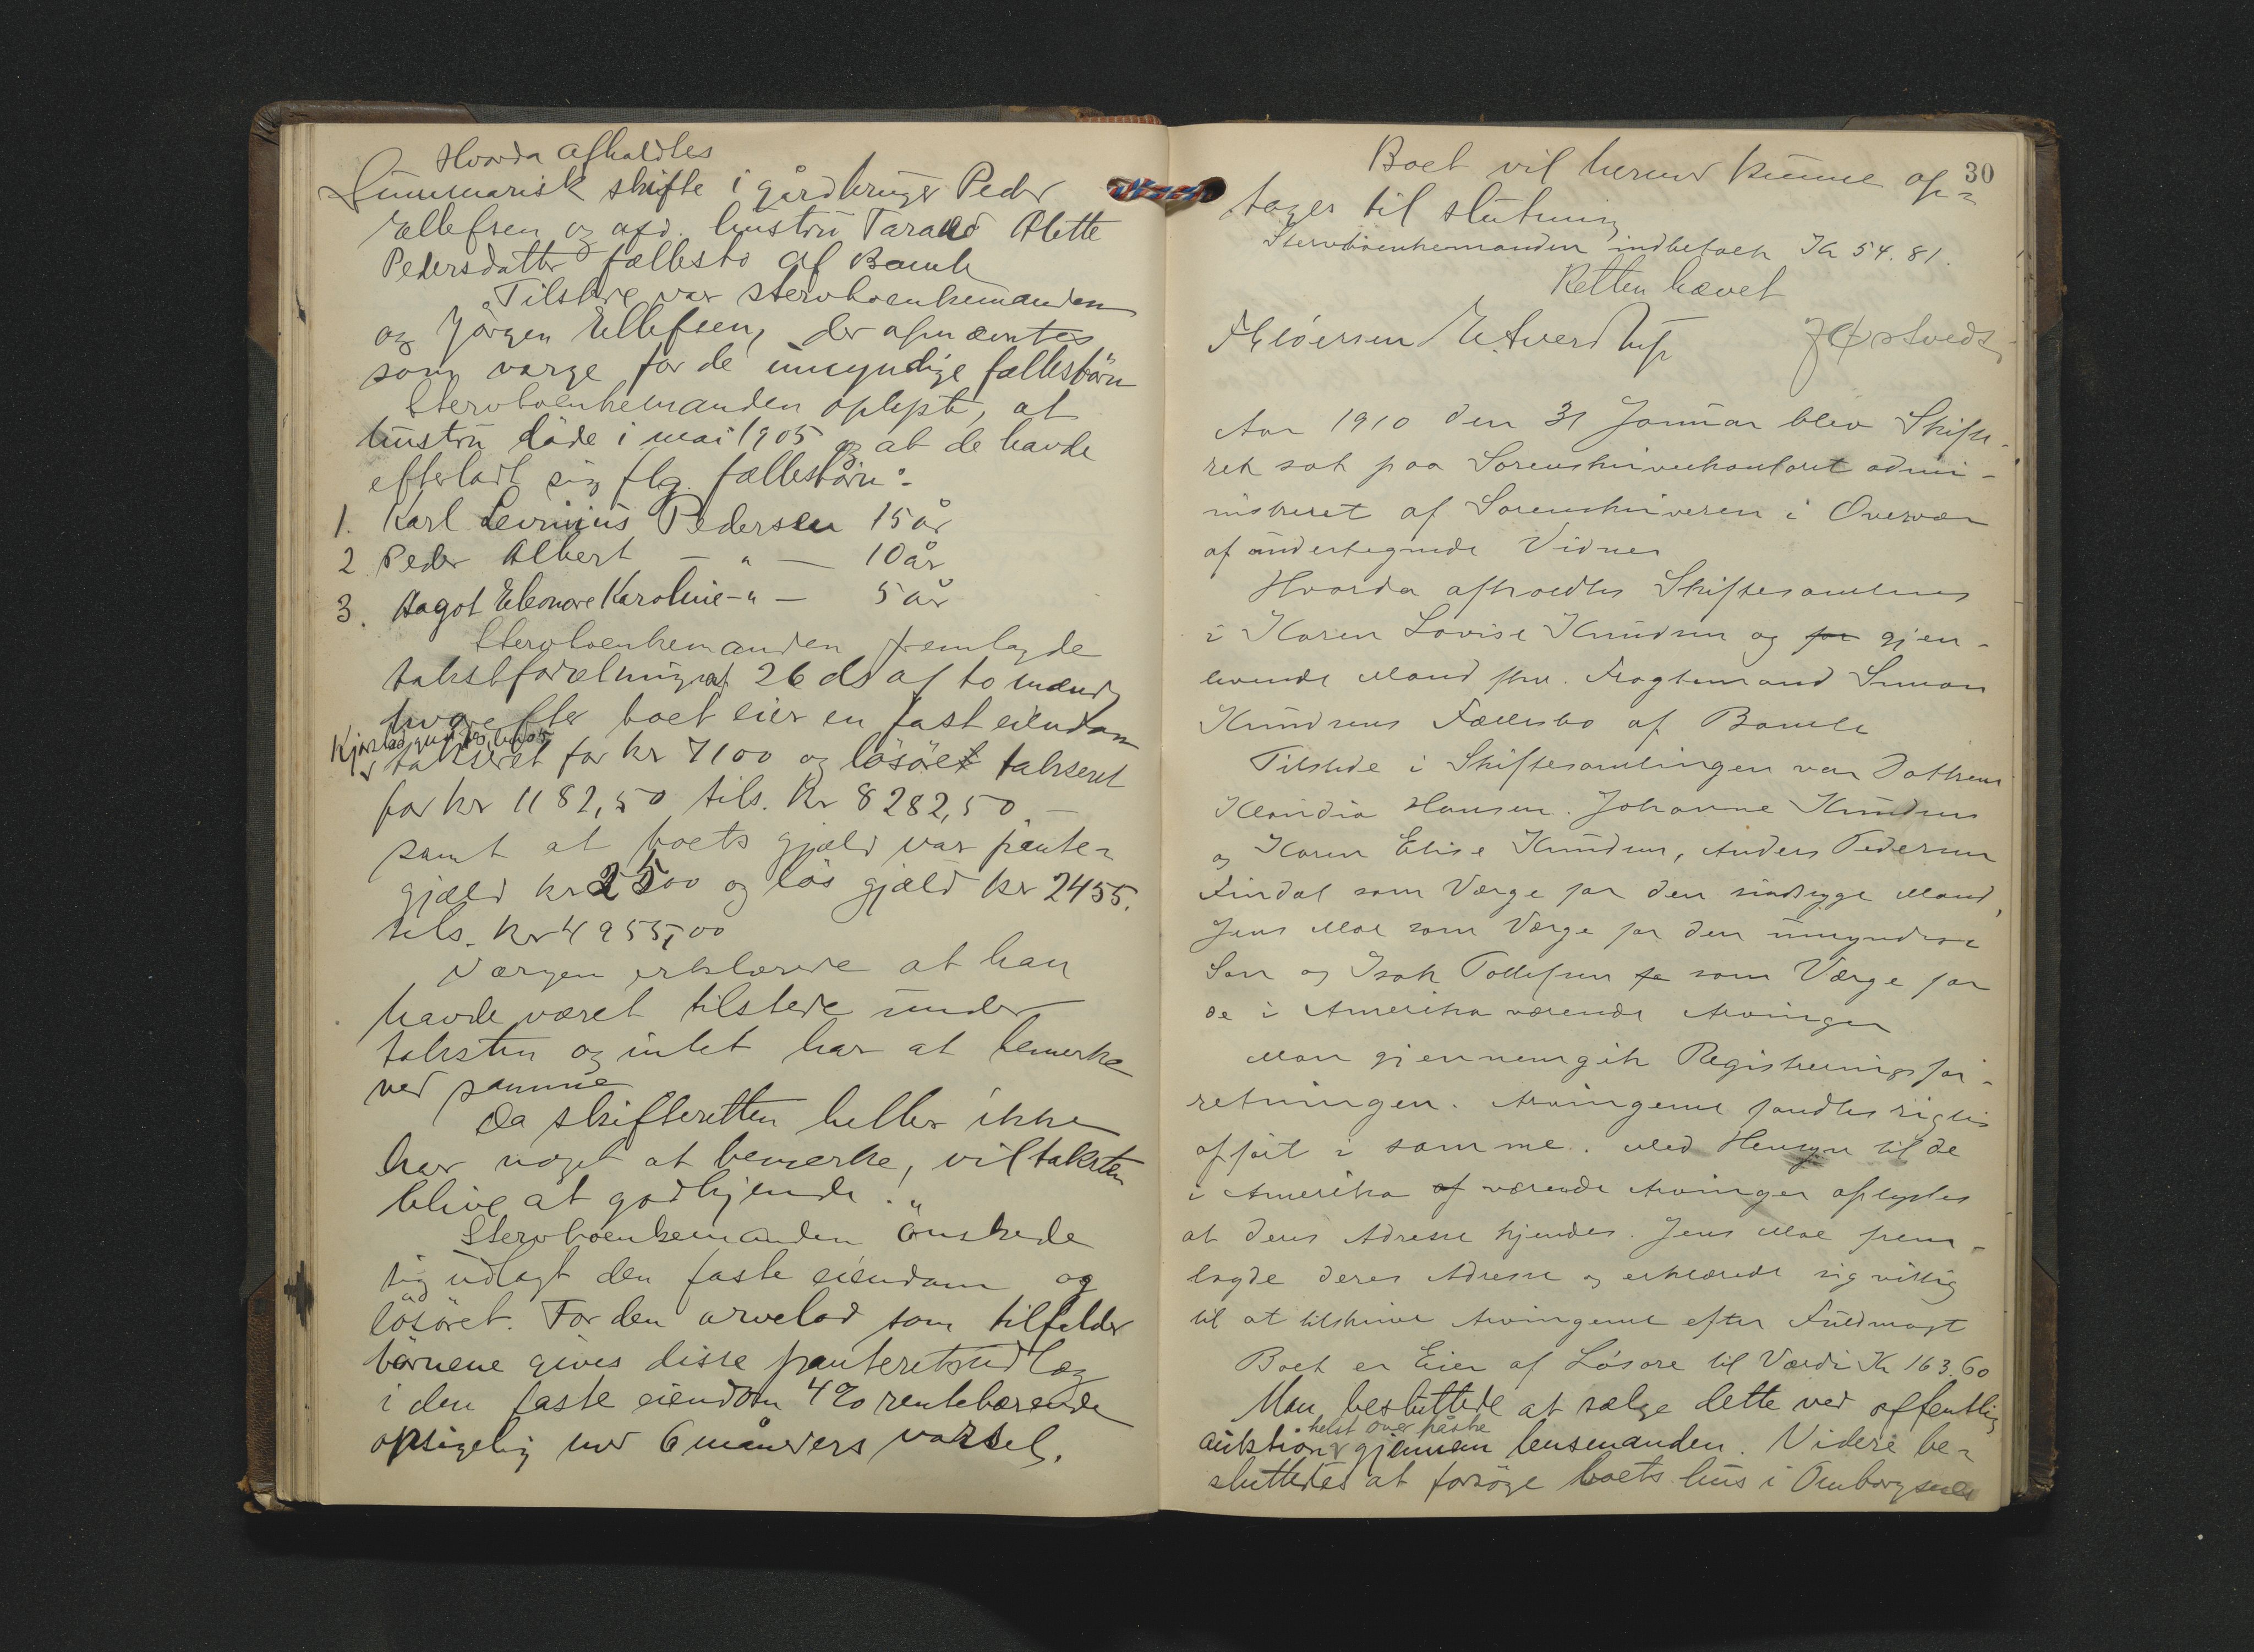 Hvorda afholdtes
Summarisk skifte i gårdbruger Peder
Ellefsen og afd. hustru Tarald Alette
Pedersdatter fællesbo af Bamle
Tilstede var stervboenkemanden
og Jörgen Ellefsen, der opnævntes
som værge for de umyndige fællesbörn
Stervboenkemanden oplyste, at
hustru döde i mai 1905 og at de havde
efterladt sig flg. fællesbörn:
1. Karl Levinius Pedersen 15 år
2. Peder Albert — " — 10 år
3. Aagot Eleonore Karoline — " — 5 år
Stervboenkemanden fremlagde
takstforretning af 26 ds af to mænd
hvorefter boet eier en fast eiendom
Kjørstad
takseret for kr 7100 og lösöret takseret
for kr 1182,50 tils. kr 8282,50 —
samt at boets gjæld var pante-
gjæld kr 2500 og lös gjæld kr 2455.
tils. kr 4955,00
Værgen erklærede at han
havde været tilstede under
taksten og intet har at bemerke
ved samme
Da skifteretten heller ikke
har noget at bemerke, vil taksten
blive at godkjende.
Stervboenkemanden önskede
sig udlagt den faste eiendom og
lösöret. For den arvelod som tilfalder
börnene gives disse panteretsudlæg
i den faste eiendom 4% rentebærende
opsigelig med 6 måneders varsel.
30
Boet vil herved kunne op-
tages til slutning
Stervboenkemanden indbetalte Kr 54.81.
Retten hævet
Aar 1910 den 31 Januar blev Skifte-
ret sat paa Sorenskriverkontoret admi-
nistreret af Sorenskriveren i Overvær
af undertegnede Vidner
Hvorda afholdtes Skiftesamling
i Karen Lovise Knudsen og for gjen-
levende Mand fhv. Fragtemand Simon
Knudsens Fællesbo af Bamle
Tilstede i Skiftesamlingen var
Klaudia Hansen. Johanne Knudsen
og Karen Elise Knudsen, Anders Pedersen
Findal som Værge for den sindsyge Mand,
Jens Moe som Værge for den umyndige
Søn og Isak Tollefsen fo som Værge for
de i Amerika værende Arvinger
Man gjennemgik Registreringsfor-
retningen. Arvingerne fandtes rigtig
opført i samme. Med Hensyn til de
i Amerika af værende Arvinger oplystes
at deres Adresse kjendes. Jens Moe frem-
lagde deres Adresse og erklærede sig villig
til at tilskrive Arvingerne efter Fuldmagt
Boet er Eier af Løsøre til Værdi Kr 163.60
Man besluttede at sælge dette ved offentlig
helst over påske
auktion gjennem lensmanden. Videre be-
sluttedes at forsöge boets hus i Omborgsnes